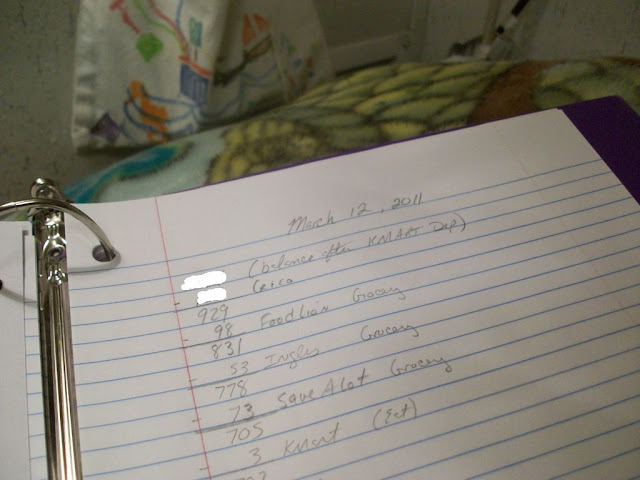 March 12, 2011
(balance after KMART Dep)
- Geico
929
- 98 Food Lion Grocery
831
- 53 Ingles Grocery
778
- 73 Save A Lot Grocery
705
- 3 Kmart (Eat)
702